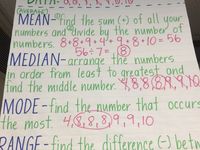 DATA: 8,8,9,4,9,8,10
(AVERAGE)
MEAN-find the sum (+) of all your
numbers and divide by the number of
numbers. 8+8+9+4+9+8+10=56
56÷7=8
MEDIAN-arrange the numbers
in order from least to greatest and
find the middle number. 4,8,8,8,9,9,10
MODE-find the number that occurs
the most. 4,8,8,8,9,9,10
RANGE-find the difference (-) betw